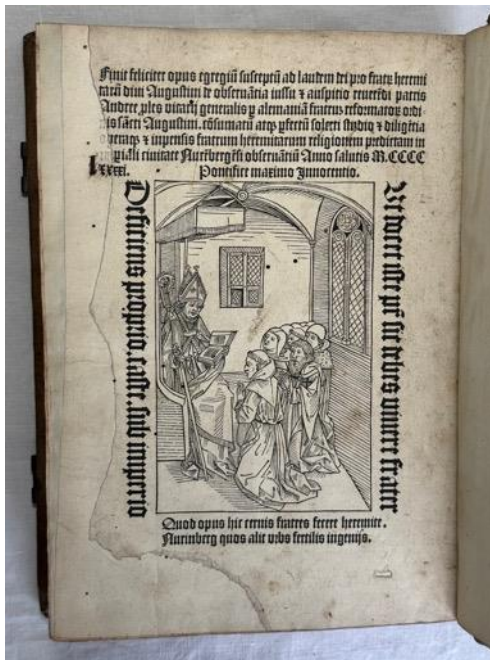 Finit feliciter opus egregiū susceptū ad laudem dei pro fratrū heremi
tarū diui Augustini de obseruātia iussu ⁊ auspitio reuerēdi patris
Andree ples vicarij generalis ꝑ alemaniā fratrū reformatoꝝ ordi-
nis sācti Augustini. cōsumatū atqꝫ ꝑfectū soleti studio ⁊ diligētia
opera ⁊ inpensis fratrum heremitarum religionem predictam in
periali ciuitate Nurēbergēsi obseruātiū Anno salutis M.CCCC
lxxxxi. Pontifice maximo Innocentio.
Defunctus proprio, caste, sub imperio
Ut docet iste pr̄ sic debes viuere frater
Quod opus hic cernis fratres fecere heremite.
Nurinberg quos alit vrbs fertilis ingenijs.